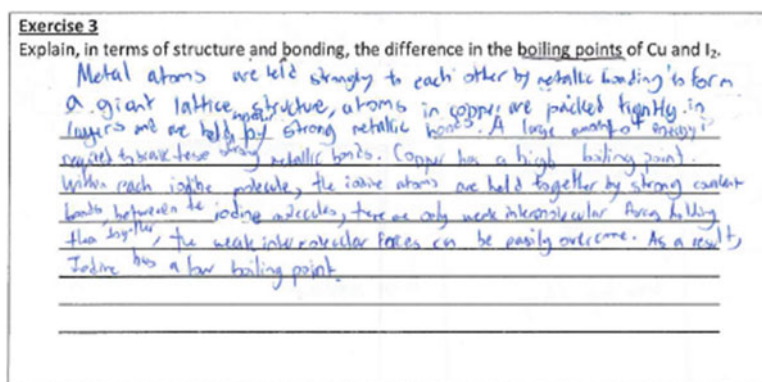 Exercise 3
Explain, in terms of structure and bonding, the difference in the boiling points of Cu and I₂.
Metal atoms are held strongly to each other by metallic bonding to form
a giant lattice structure, atoms in copper are packed tightly in
layers and are held by strong metallic bonds. A large amount of energy is
required to break these strong metallic bonds. Copper has a high boiling point.
Within each iodine molecule, the iodine atoms are held together by strong covalent
bonds, between the iodine molecules, there are only weak intermolecular forces holding
them together, the weak intermolecular forces can be easily overcome. As a result,
Iodine has a low boiling point.